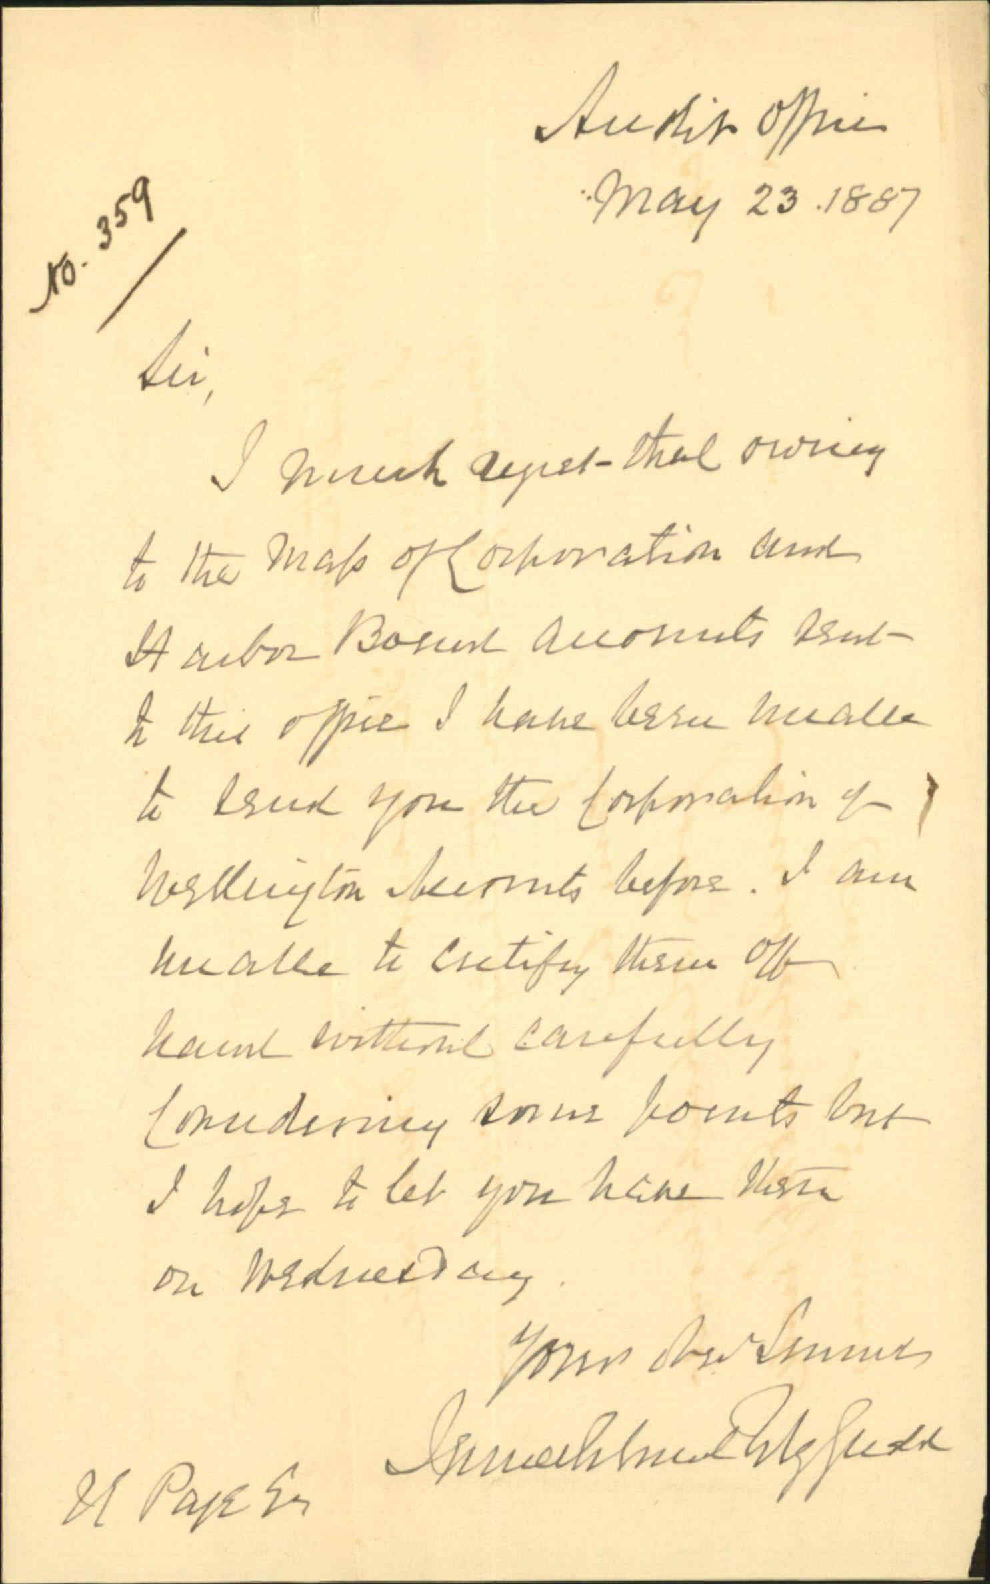 Audit Office
May 23. 1887
No. 359
Sir,
I much regret that owing
to the Mass of Corporation and
Harbor Board Accounts sent
to this office I have been unable
to send you the Corporation of
Wellington Accounts before. I am
unable to certify them off
hand without carefully
Considering some points but
I hope to let you have them
on Wednesday.
Your Obed Servant
James Edward FitzGerald
H Page Esq